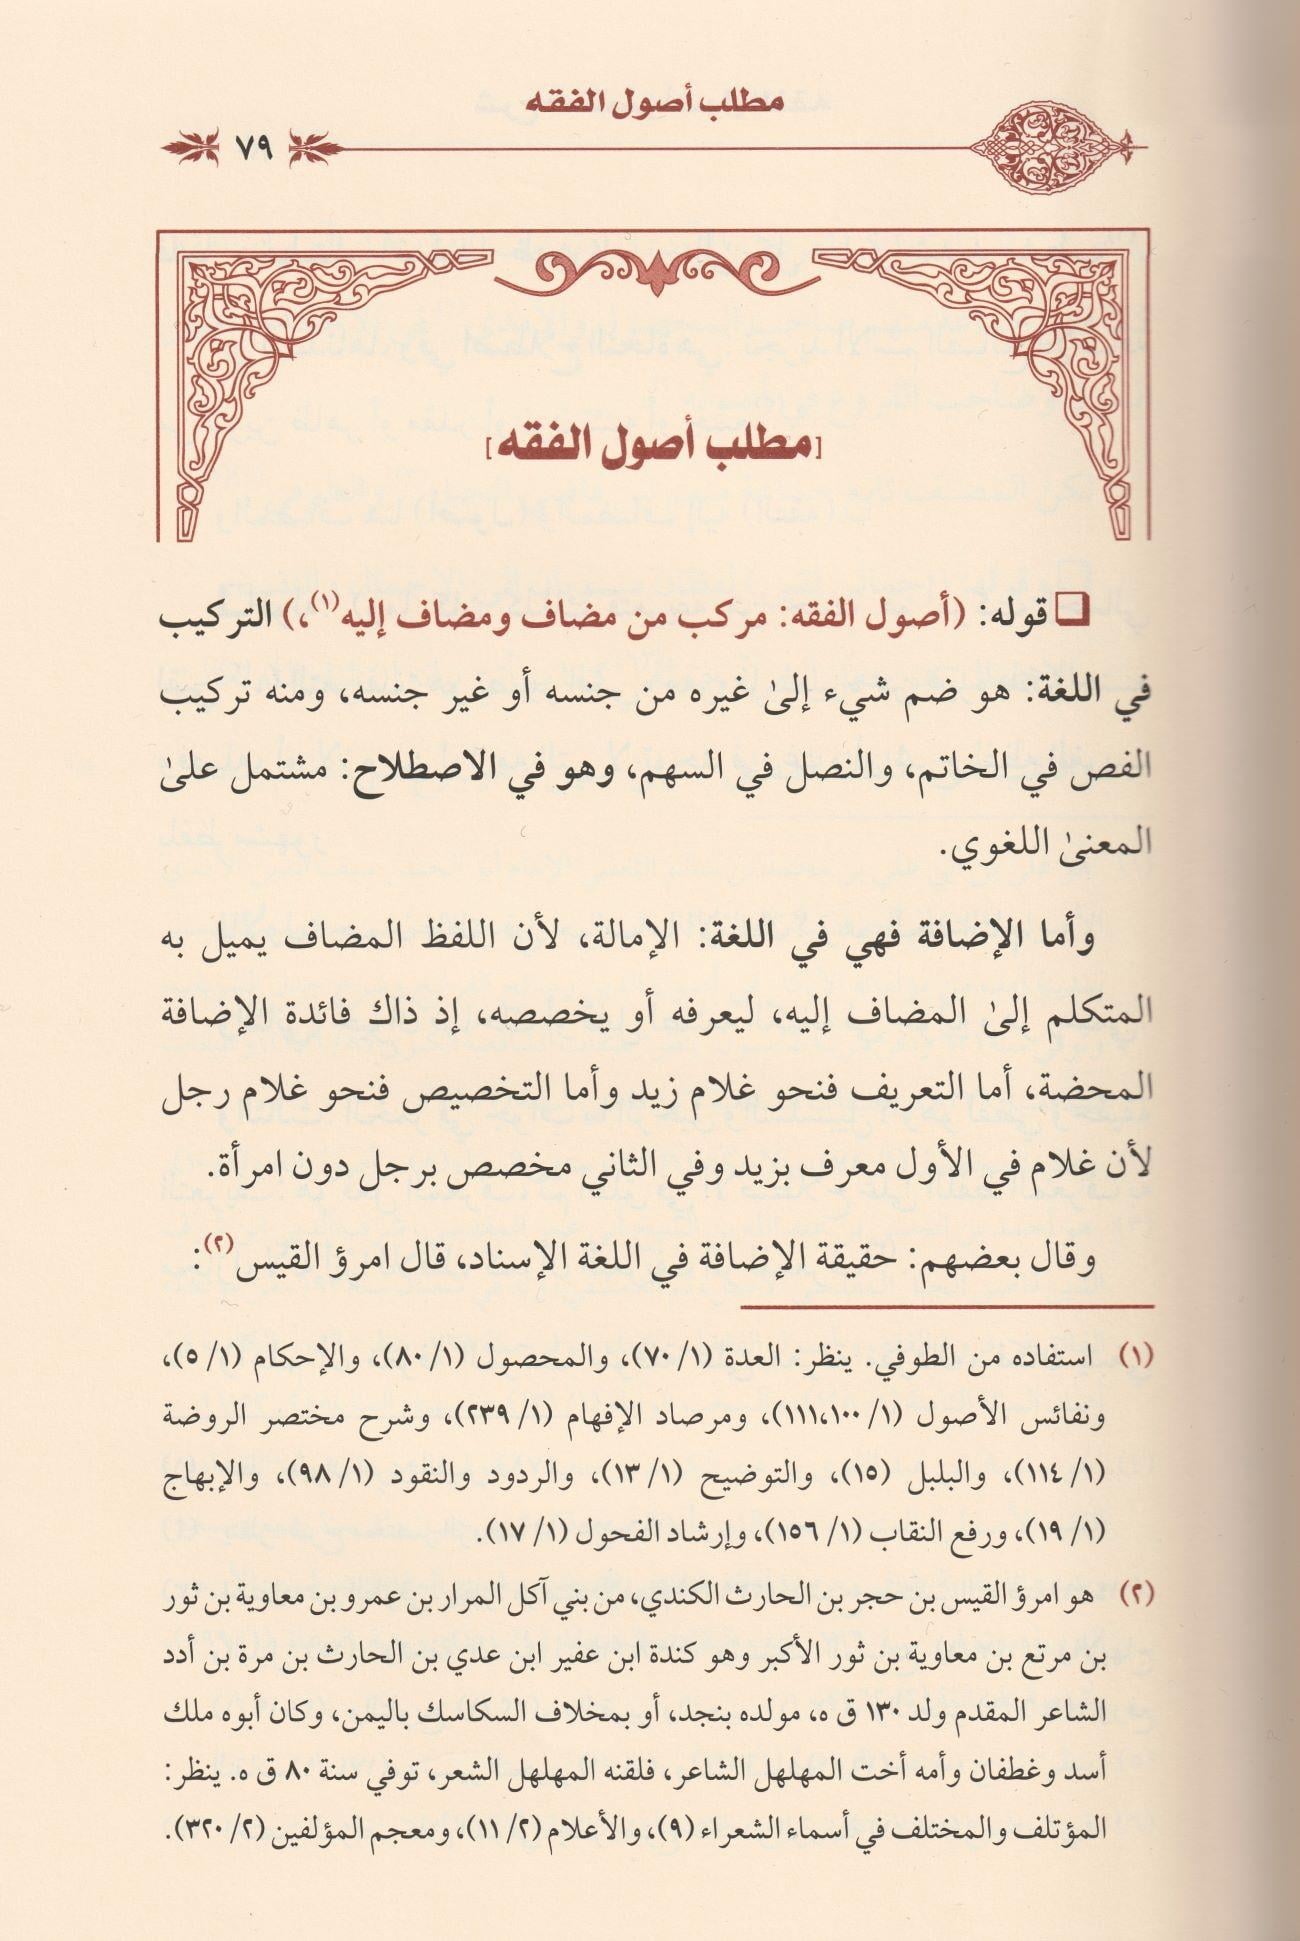 مطلب أصول الفقه
٧٩
[مطلب أصول الفقه]
قوله: (أصول الفقه: مركب من مضاف ومضاف إليه(١)،) التركيب
في اللغة: هو ضم شيء إلىٰ غيره من جنسه أو غير جنسه، ومنه تركيب
الفص في الخاتم، والنصل في السهم، وهو في الاصطلاح: مشتمل علىٰ
المعنىٰ اللغوي.
وأما الإضافة فهي في اللغة: الإمالة، لأن اللفظ المضاف يميل به
المتكلم إلىٰ المضاف إليه، ليعرفه أو يخصصه، إذ ذاك فائدة الإضافة
المحضة، أما التعريف فنحو غلام زيد وأما التخصيص فنحو غلام رجل
لأن غلام في الأول معرف بزيد وفي الثاني مخصص برجل دون امرأة.
وقال بعضهم: حقيقة الإضافة في اللغة الإسناد، قال امرؤ القيس(٢):
(١) استفاده من الطوفي. ينظر: العدة (١/ ٧٠)، والمحصول (١/ ٨٠)، والإحكام (١/ ٥)،
ونفائس الأصول (١/ ١١١،١٠٠)، ومرصاد الإفهام (١/ ٢٣٩)، وشرح مختصر الروضة
(١/ ١١٤)، والبلبل (١٥)، والتوضيح (١/ ١٣)، والردود والنقود (١/ ٩٨)، والإبهاج
(١/ ١٩)، ورفع النقاب (١/ ١٥٦)، وإرشاد الفحول (١/ ١٧).
(٢) هو امرؤ القيس بن حجر بن الحارث الكندي، من بني آكل المرار بن عمرو بن معاوية بن ثور
بن مرتع بن معاوية بن ثور الأكبر وهو كندة ابن عفير ابن عدي بن الحارث بن مرة بن أدد
الشاعر المقدم ولد ١٣٠ ق ه، مولده بنجد، أو بمخلاف السكاسك باليمن، وكان أبوه ملك
أسد وغطفان وأمه أخت المهلهل الشاعر، فلقنه المهلهل الشعر، توفي سنة ٨٠ ق ه. ينظر:
المؤتلف والمختلف في أسماء الشعراء (٩)، والأعلام (٢/ ١١)، ومعجم المؤلفين (٢/ ٣٢٠).